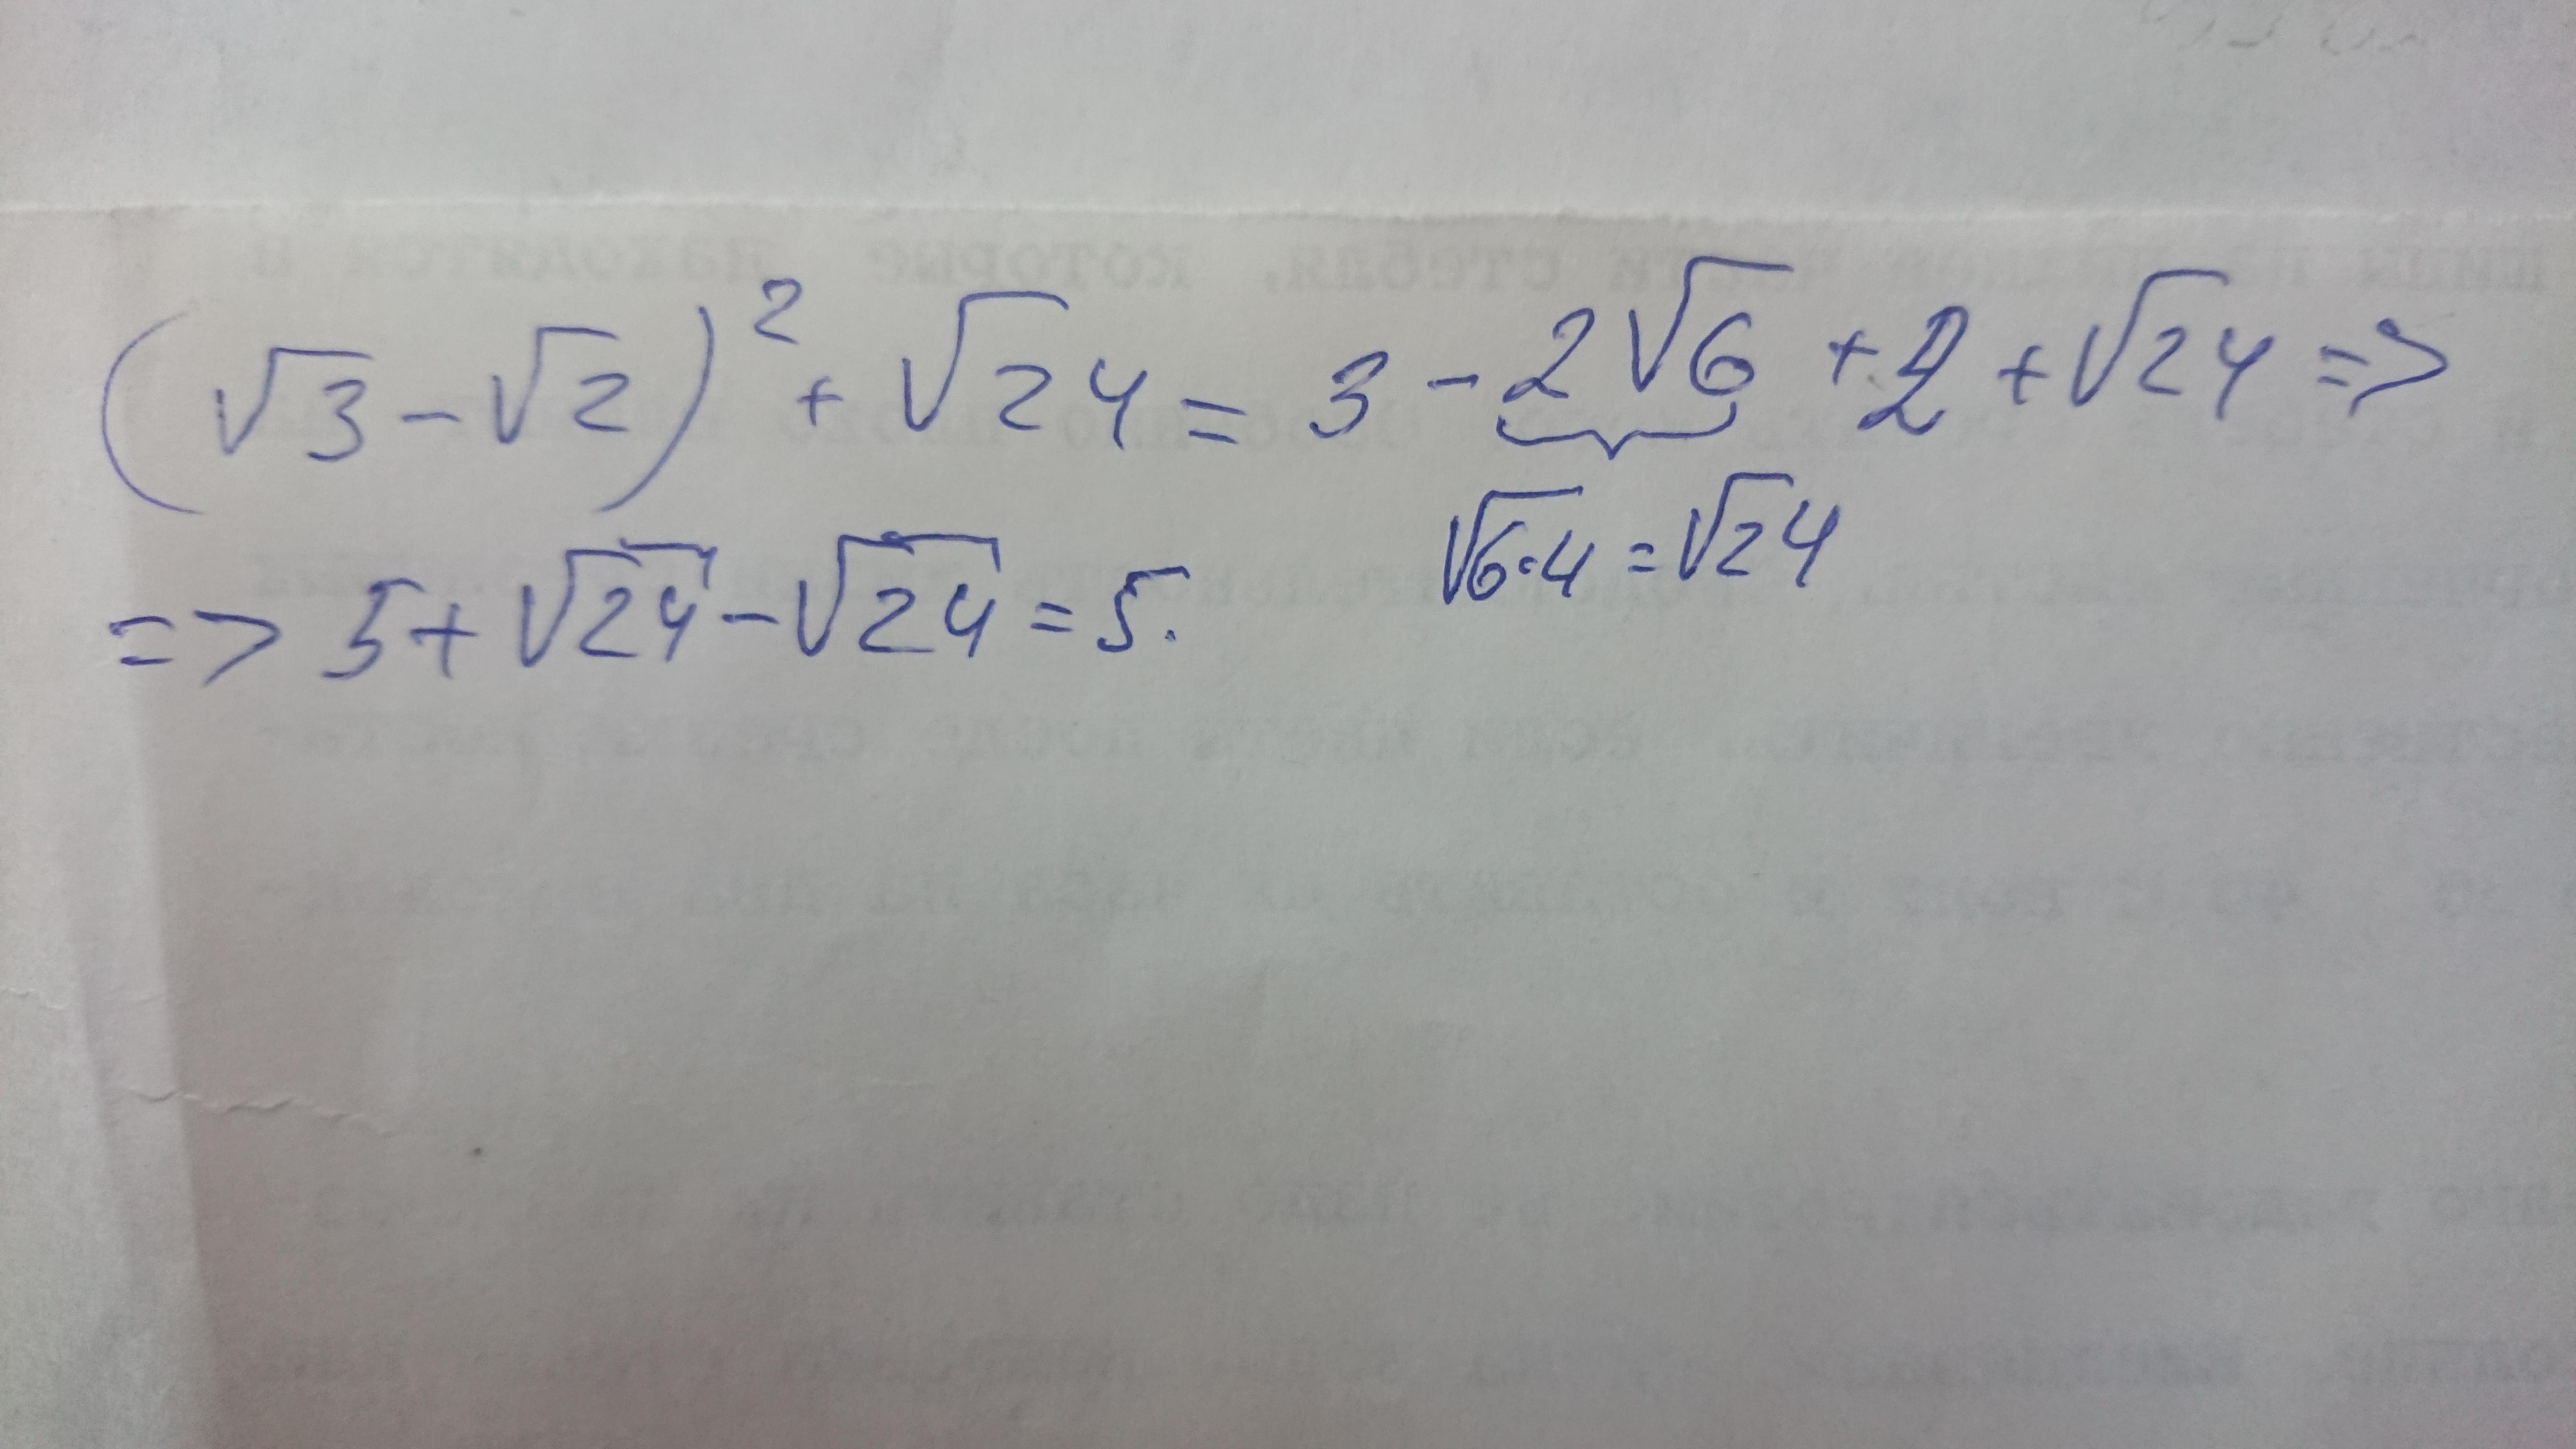 (√3-√2)² + √24 = 3 - 2√6 + 2 + √24 =>
√6·4 = √24
=> 5 + √24 - √24 = 5.